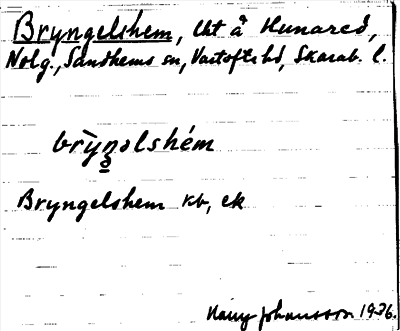 Bryngelshem, lht å Hunared,
Nolg., Sandhems sn, Vartofta hd, Skarab. l.
brỳŋəlshém
Bryngelshem kb, ek
Harry Johansson 1936.